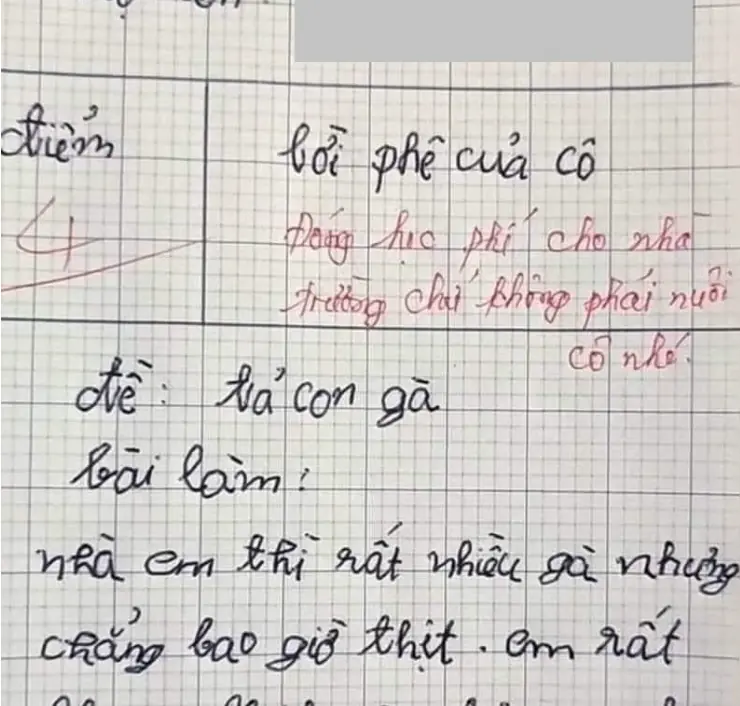 điểm
lời phê của cô
4
Đóng học phí cho nhà
trường chứ không phải nuôi
cô nhé.
đề: tả con gà
bài làm:
nhà em thì rất nhiều gà nhưng
chẳng bao giờ thịt. em rất